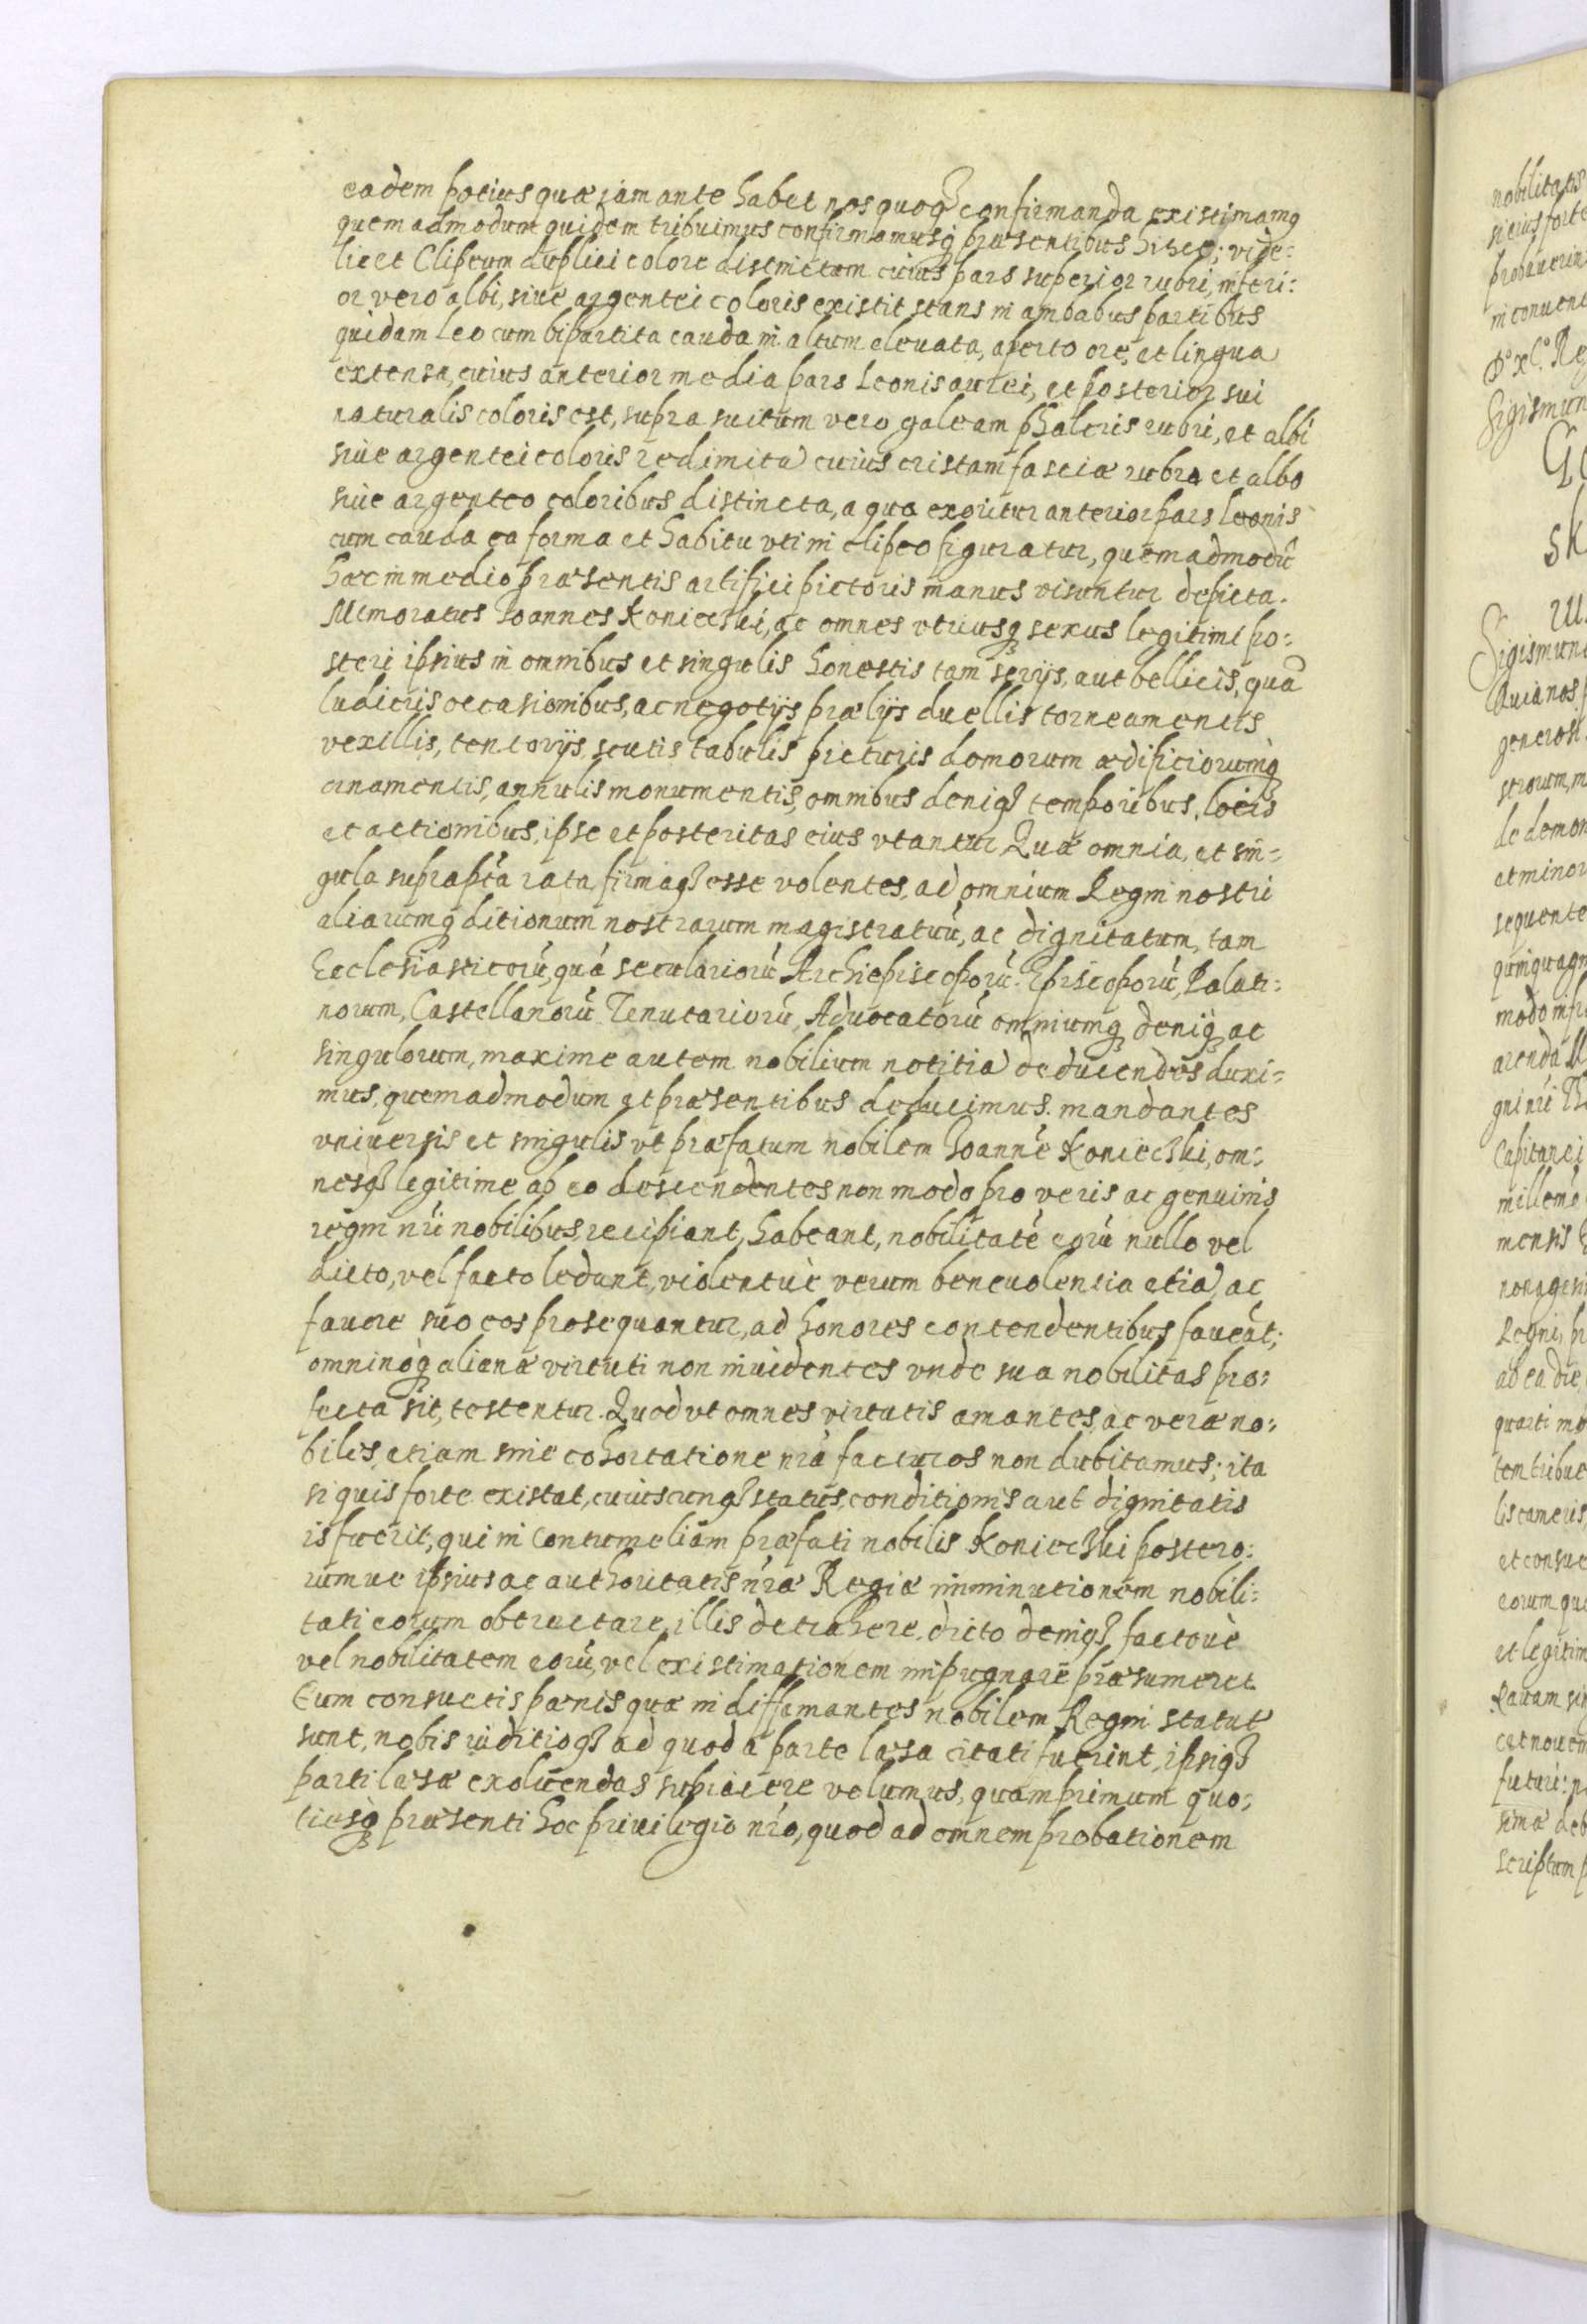 eadem potius quæ iam ante habet nos quoq(ue) confirmanda existimamq
quemadmodum quidem tribuimus confirmamusq præsentibus hisce; vide:
licet Clipeum duplici colore distinctum cuius pars superior rubri, inferi:
or vero albi, siue argentei coloris existit stans in ambabus partibus
quidam leo cum bipartita cauda in altum eleuata, aperto ore, et lingua
extensa, cuius anterior media pars Leonis aurei, et posterior sui
naturalis coloris est, supra scutum vero galeam phaleris rubri, et albi
siue argentei coloris redimita cuius cristam fasciæ rubro et albo
siue argenteo coloribus distincta, a qua exoritur anterior pars leonis
cum cauda ea forma et habitu vti in clipeo figuratur, quemadmodũ
hæc in medio præsentis artifici pictoris manus visuntur depicta.
Memoratus Ioannes Konieczki, ac omnes vtriusq sexus legitimi po:
steri ipsius in omnibus et singulis honestis tam serijs, aut bellicis, quã
ludicris occasionibus, ac negotijs prælijs duellis torneamentis
vexillis, tentorijs, scutis tabulis picturis domorum ædificiorumq
ornamentis, annulis monumentis, omnibus deniq temporibus, locis
et actionibus, ipse et posteritas eius vtantur Quæ omnia, et sin=
gula suprapta rata firmaq esse volentes, ad omnium Regni nostri
aliarumq ditionum nostrarum magistratuũ, ac dignitatum, tam
Ecclesiasticorũ, quã seculariorũ Archiepiscoporũ Episcoporũ, Palati:
norum, Castellanorũ Tenutariorũ, Aduocatorũ omniumq deniq ac
singulorum, maxime autem nobilium notitia deducendos duxi=
mus, quemadmodum et præsentibus deducimus. mandantes
vniuersis et singulis vt præfatum nobilem Ioannẽ Konieczki, om:
nesq legitime ab eo descendentes non modo pro veris ac genuinis
regni nri nobilibus, recipiant, habeant, nobilitatẽ eorũ nullo vel
dicto, vel facto ledant, violentuè verum beneuolentia etiã, ac
fauore suo eos prosequantur, ad honores contendentibus faueãt;
omninoq alienæ virtuti non inuidentes vnde sua nobilitas pro:
fecta sit, testentur. Quod vt omnes virtutis amantes, ac veræ no:
biles, etiam sine cohortatione nra facturos non dubitamus; ita
si quis forte existat, cuiuscunq status, conditionis aut dignitatis
is fuerit, qui in contumeliam præfati nobilis Konieczki postero:
rumue ipsius ac authoritatis nræ Regiæ imminutionem nobili:
tati eorum obtrectare, illis detrahere, dicto deniq, factouè
vel nobilitatem eorũ, vel existimationem impugnare præsumeret
Eum consuetis pænis quæ in diffamantes nobilem Regni statut
sunt, nobis iuditioq ad quod a parte læsa citati fuerint, ipsiq
parti læsæ exoluendas subiacere volumus, quamprimum quo:
tiesq præsenti hoc priuilegio nro, quod ad omnem probationem
nobilitatis
si eius forte
probauerin
in conuent
Sigismun
Sigismun
Quia nos
generosi
de demon
et minor
sequente
quinquagin
modo infr
arenda
Capitanei
mensis
Regni, pr
ab ea die
quarti
tem tribue
lis cameris
et consue
eorum qu
et legitim
futuri:
scriptum p